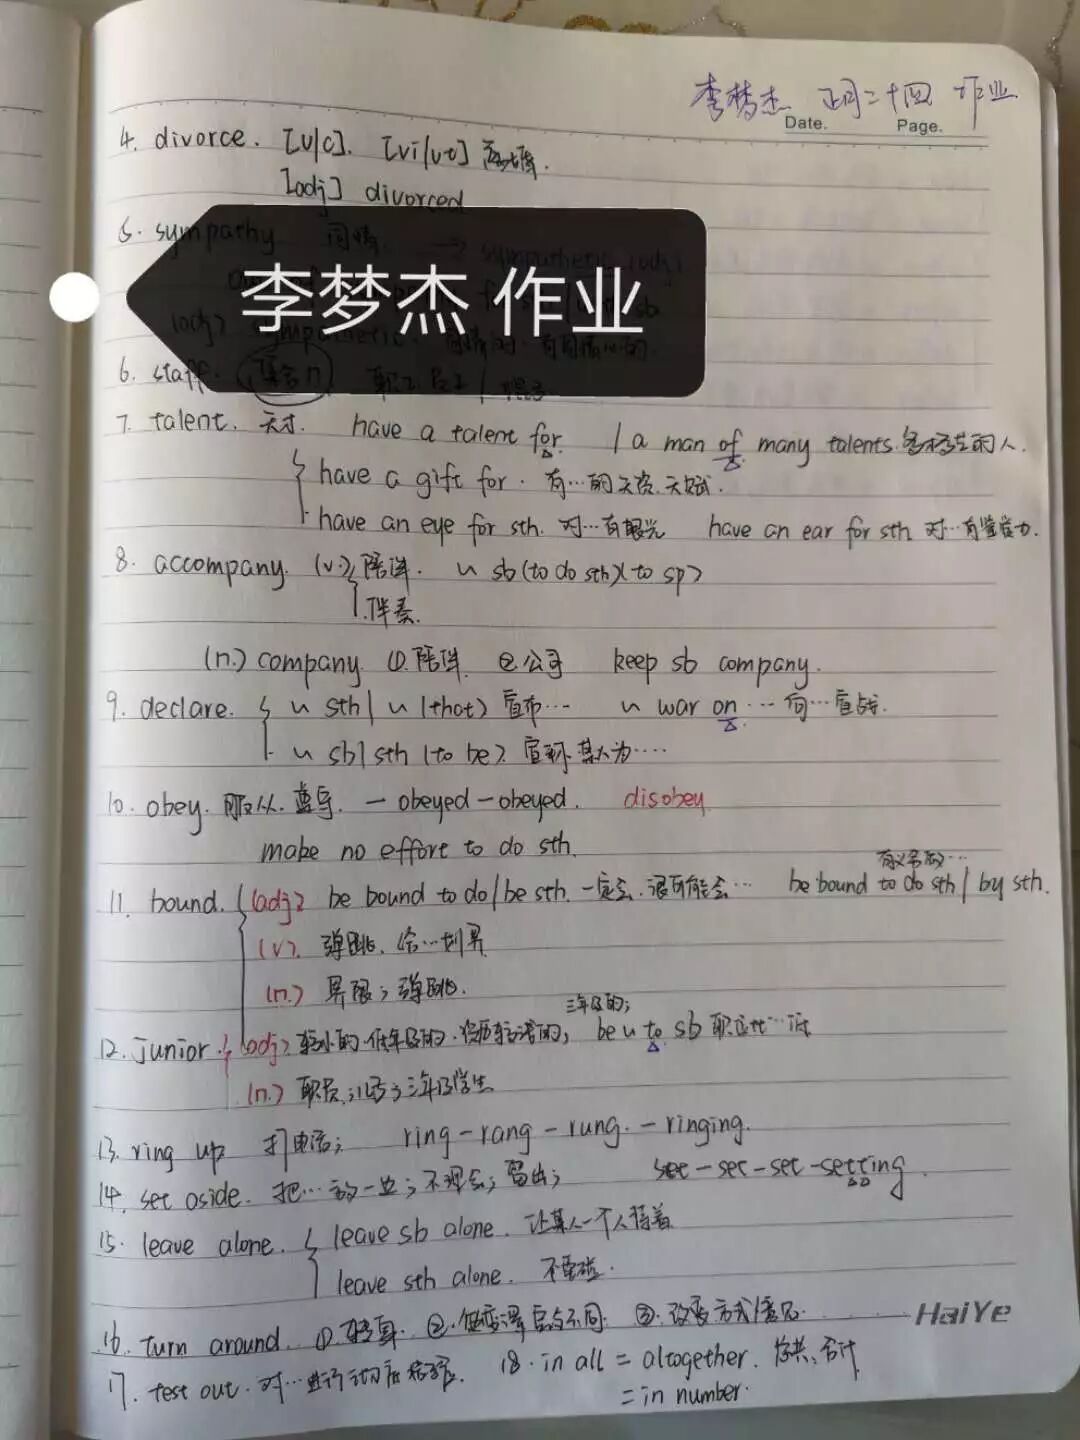 李梦杰 正月二十四 作业
Date. Page.
4. divorce. [u/c]. [vi/vt] 离婚.
[adj] divorced
5. sympathy 同情. → sympathetic (adj)
李梦杰 作业
(adj) sympathetic. 有同情心的.
6. staff. (集合n) 职工 员工 /
7. talent. 天才. have a talent for. / a man of many talents. 多才多艺的人.
have a gift for. 有…的天资.天赋.
have an eye for sth. 对…有眼光 have an ear for sth 对…有鉴赏力.
8. accompany. (v.) 陪伴. ~ sb (to do sth) (to sp)
伴奏.
(n.) company. ①.陪伴. ②公司 keep sb company.
9. declare. ~ sth / ~ (that) 宣布… ~ war on … 向…宣战.
~ sb/sth (to be). 宣称某人为….
10. obey. 服从. 遵守. - obeyed - obeyed. disobey.
make no effort to do sth.
有义务做…
11. bound. (adj) be bound to do/be sth. 一定会. 很可能会… be bound to do sth / by sth.
(v). 弹跳. 给…划界
(n.) 界限; 弹跳.
三年级的;
12. junior. (adj) 较小的. 低年级的. 资历较浅的; be ~ to sb 职位比…低
(n.) 职员; 三年级学生
13. ring up 打电话; ring - rang - rung. - ringing.
14. set aside. 把…放一边; 不理会; 留出; set - set - set - setting.
15. leave alone. leave sb alone. 让某人一个人待着
leave sth alone. 不要碰.
HaiYe
16. turn around. ①.转身. ②. ③.改变方式/意见.
17. test out. 对…进行 18. in all = altogether. 总共. 合计
= in number.